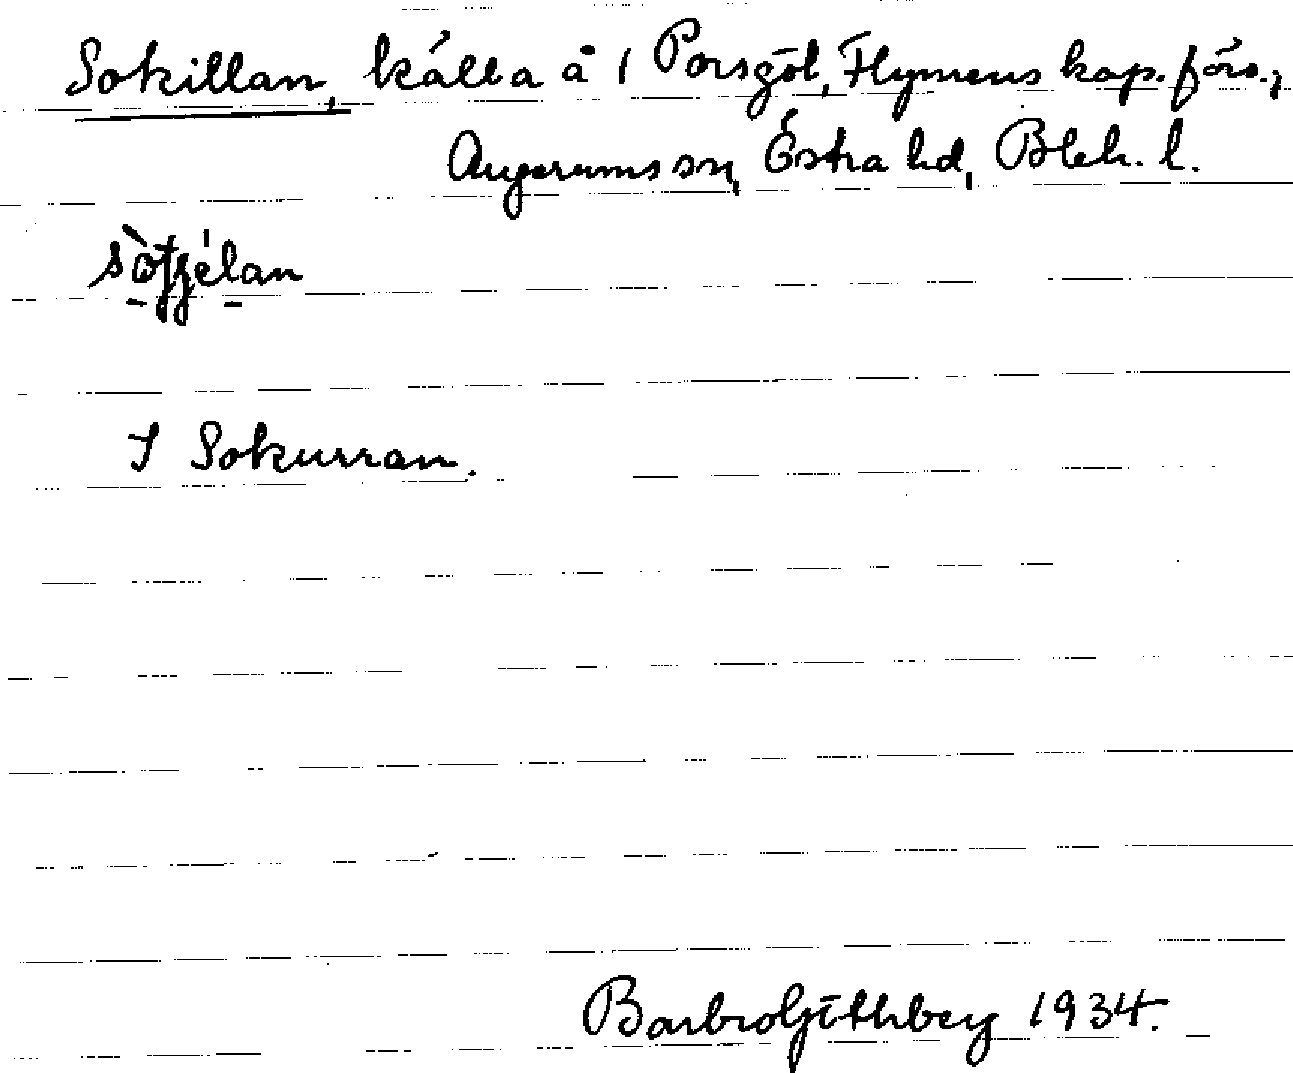 Sokillan, källa å 1 Porsgöl, Flymens kap. förs.,
Augerums sn, Östra hd, Blek. l.
I Sokurran.
1934.